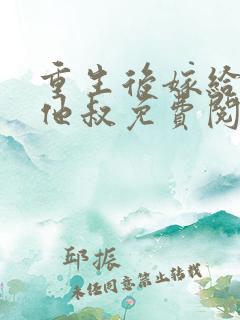 重生後嫁給
他叔免費閱
邱振
未经同意禁止转载